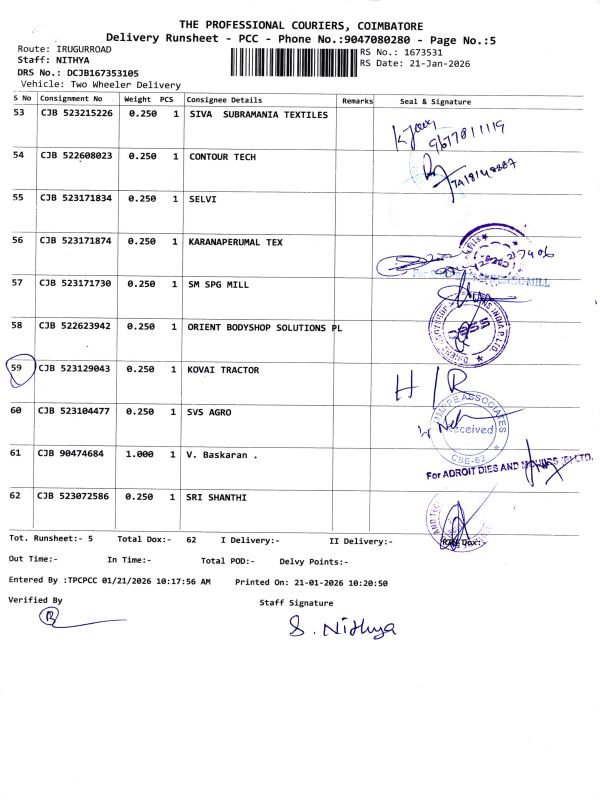 THE PROFESSIONAL COURIERS, COIMBATORE
Delivery Runsheet - PCC - Phone No.:9047080280 - Page No.:5
Route: IRUGURROAD
RS No.: 1673531
Staff: NITHYA
RS Date: 21-Jan-2026
DRS No.: DCJB167353105
Vehicle: Two Wheeler Delivery
S No Consignment No Weight PCS Consignee Details Remarks Seal & Signature
53 CJB 523215226 0.250 1 SIVA SUBRAMANIA TEXTILES
9677811119
54 CJB 522608023 0.250 1 CONTOUR TECH
55 CJB 523171834 0.250 1 SELVI
56 CJB 523171874 0.250 1 KARANAPERUMAL TEX
57 CJB 523171730 0.250 1 SM SPG MILL
58 CJB 522623942 0.250 1 ORIENT BODYSHOP SOLUTIONS PL
59 CJB 523129043 0.250 1 KOVAI TRACTOR
H/R
60 CJB 523104477 0.250 1 SVS AGRO
ASSOCIATES
Received
CBE-62
61 CJB 90474684 1.000 1 V. Baskaran .
For ADROIT DIES AND MOULDS (P) LTD.
62 CJB 523072586 0.250 1 SRI SHANTHI
Tot. Runsheet:- 5 Total Dox:- 62 I Delivery:- II Delivery:- Dox:-
Out Time:- In Time:- Total POD:- Delvy Points:-
Entered By :TPCPCC 01/21/2026 10:17:56 AM Printed On: 21-01-2026 10:20:50
Verified By Staff Signature
S. Nithya